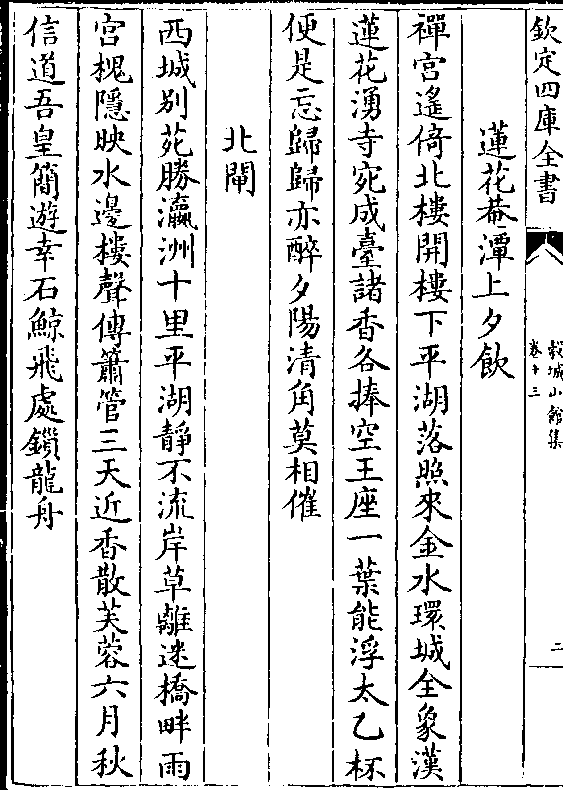 欽定四庫全書
穀城山館集
卷十三
二
蓮花菴潭上夕飲
禪宮遙倚北樓開樓下平湖落照來金水環城全象漢
蓮花湧寺宛成臺諸香各捧空王座一葉能浮太乙杯
便是忘歸歸亦醉夕陽清角莫相催
北閘
西城别苑勝瀛洲十里平湖靜不流岸草離迷橋畔雨
宮槐隱映水邊樓聲傳簫管三天近香散芙蓉六月秋
信道吾皇簡遊幸石鯨飛處鎖龍舟